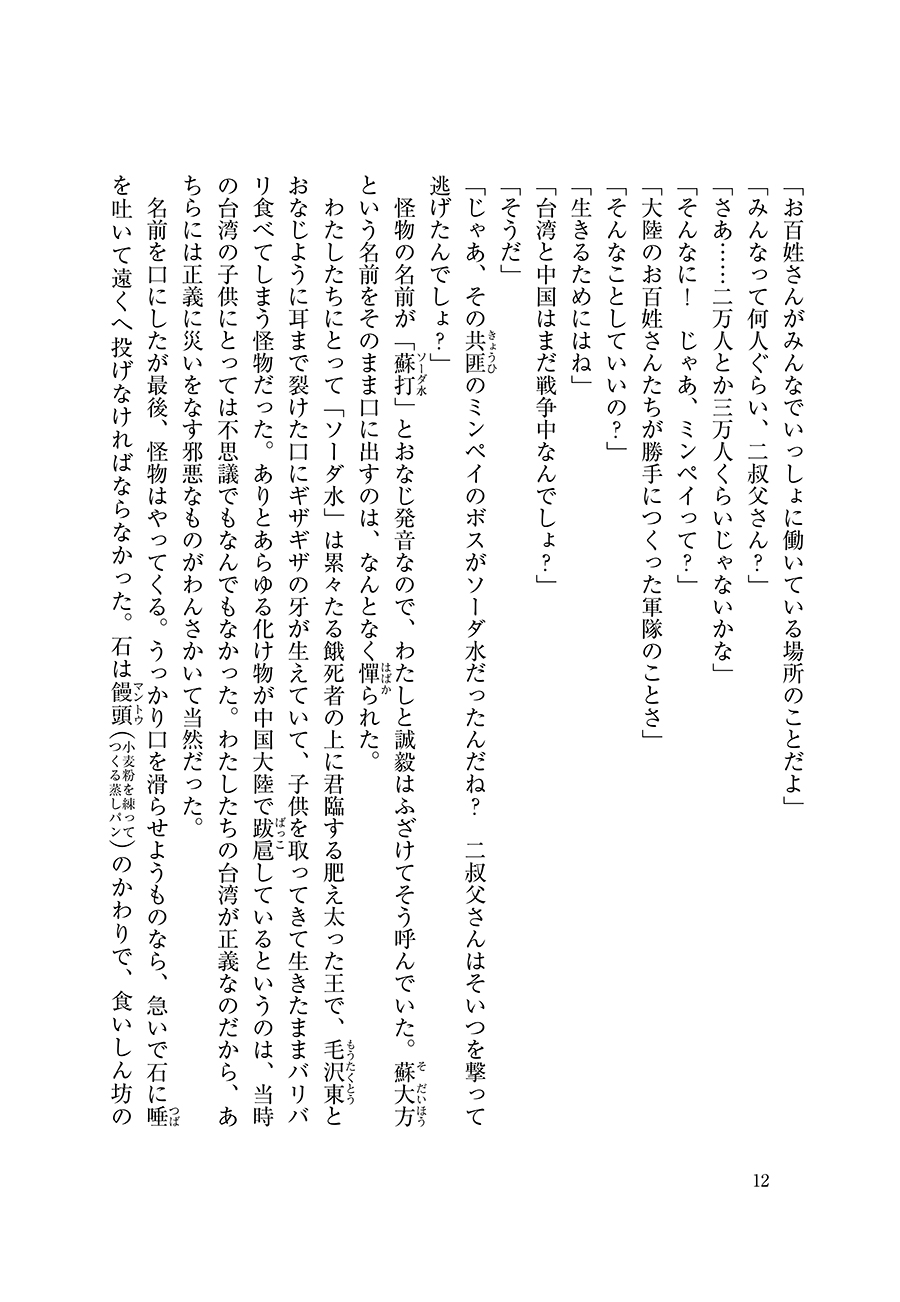 「お百姓さんがみんなでいっしょに働いている場所のことだよ」
「みんなって何人ぐらい、二叔父さん？」
「さあ……二万人とか三万人くらいじゃないかな」
「そんなに！　じゃあ、ミンペイって？」
「大陸のお百姓さんたちが勝手につくった軍隊のことさ」
「そんなことしていいの？」
「生きるためにはね」
「台湾と中国はまだ戦争中なんでしょ？」
「そうだ」
「じゃあ、その共匪きょうひのミンペイのボスがソーダ水だったんだね？　二叔父さんはそいつを撃って
逃げたんでしょ？」
　怪物の名前が「蘇打ソーダ水」とおなじ発音なので、わたしと誠毅はふざけてそう呼んでいた。蘇大方そだいほう
という名前をそのまま口に出すのは、なんとなく憚はばかられた。
　わたしたちにとって「ソーダ水」は累々たる餓死者の上に君臨する肥え太った王で、毛沢東もうたくとうと
おなじように耳まで裂けた口にギザギザの牙が生えていて、子供を取ってきて生きたままバリバ
リ食べてしまう怪物だった。ありとあらゆる化け物が中国大陸で跋扈ばっこしているというのは、当時
の台湾の子供にとっては不思議でもなんでもなかった。わたしたちの台湾が正義なのだから、あ
ちらには正義に災いをなす邪悪なものがわんさかいて当然だった。
　名前を口にしたが最後、怪物はやってくる。うっかり口を滑らせようものなら、急いで石に唾つば
を吐いて遠くへ投げなければならなかった。石は饅頭マントウ（小麦粉を練ってつくる蒸しパン）のかわりで、食いしん坊の
12